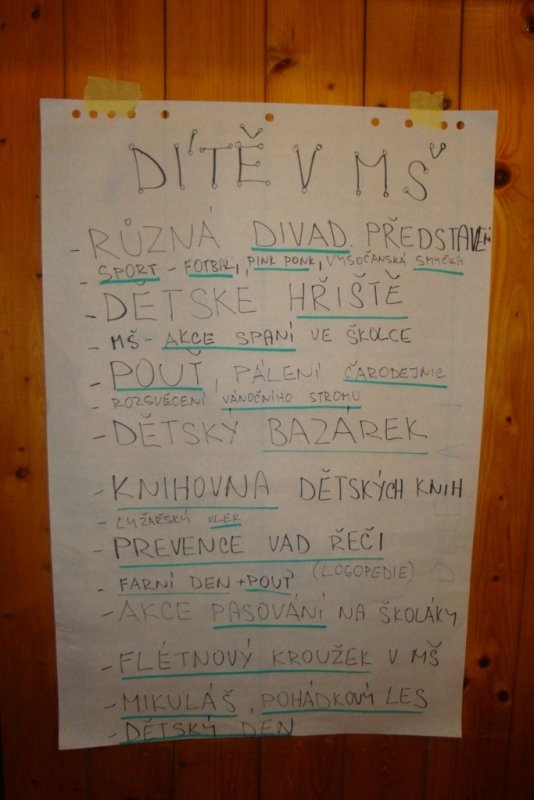 DÍTĚ V MŠ
- RŮZNÁ DIVAD. PŘEDSTAVENÍ
- SPORT - FOTBAL, PINK PONK, VYSOČANSKÁ SMYČKA
- DĚTSKE HŘIŠTĚ
- MŠ - AKCE SPANÍ VE ŠKOLCE
- POUŤ, PÁLENÍ ČARODEJNIC
- ROZSVĚCENÍ VÁNOČNÍHO STROMU
- DĚTSKÝ BAZÁREK
- KNIHOVNA DĚTSKÝCH KNIH
- LYŽAŘSKÝ VLEK
- PREVENCE VAD ŘEČI
(LOGOPEDIE)
- FARNÍ DEN + POUŤ
- AKCE PASOVÁNÍ NA ŠKOLÁKY
- FLÉTNOVÝ KROUŽEK V MŠ
- MIKULÁŠ, POHÁDKOVÝ LES
- DĚTSKÝ DEN